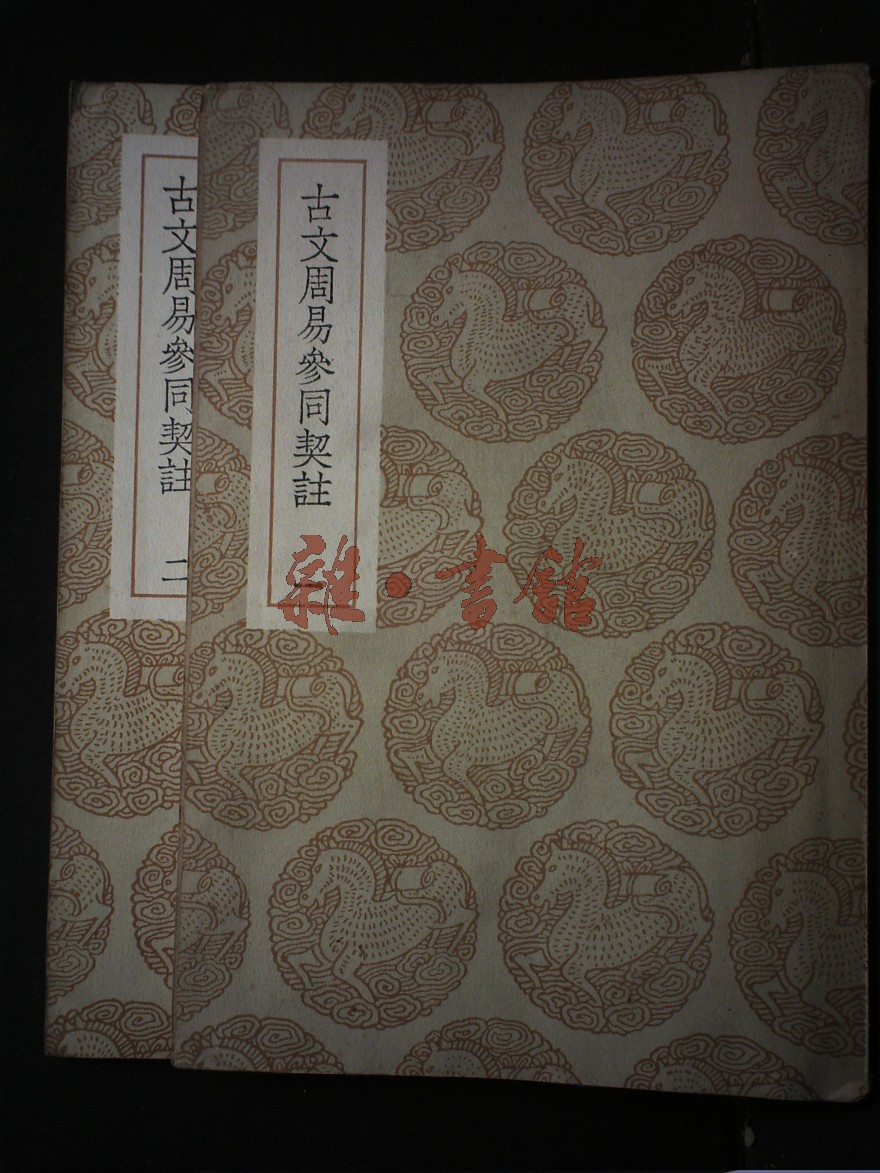 古文周易參同契註 一
古文周易參同契註 二
雜·書舘